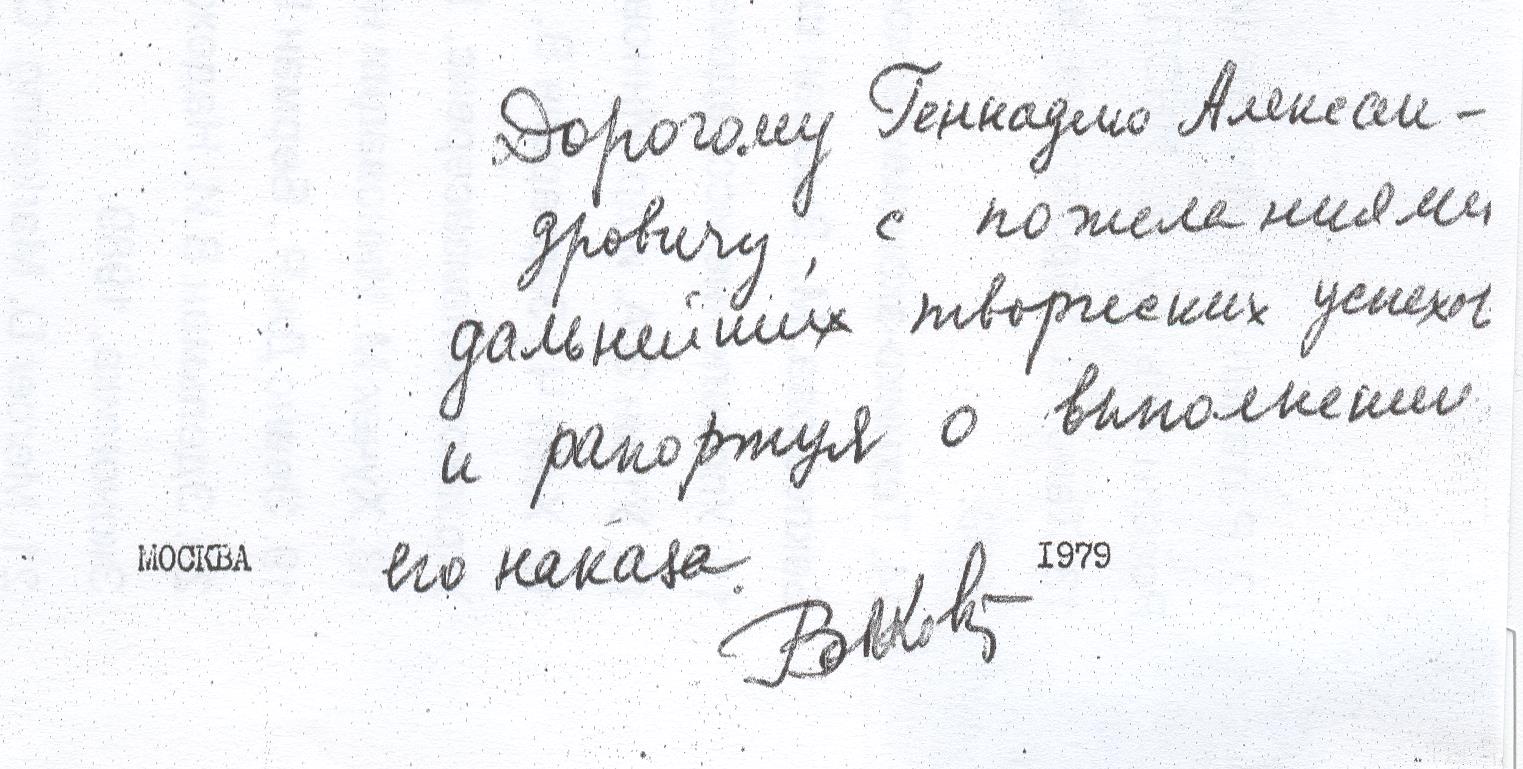 Дорогому Геннадию Алексан-
дровичу, с пожеланиями
дальнейших творческих успехов
и рапортуя о выполнении
его наказа.
МОСКВА 1979